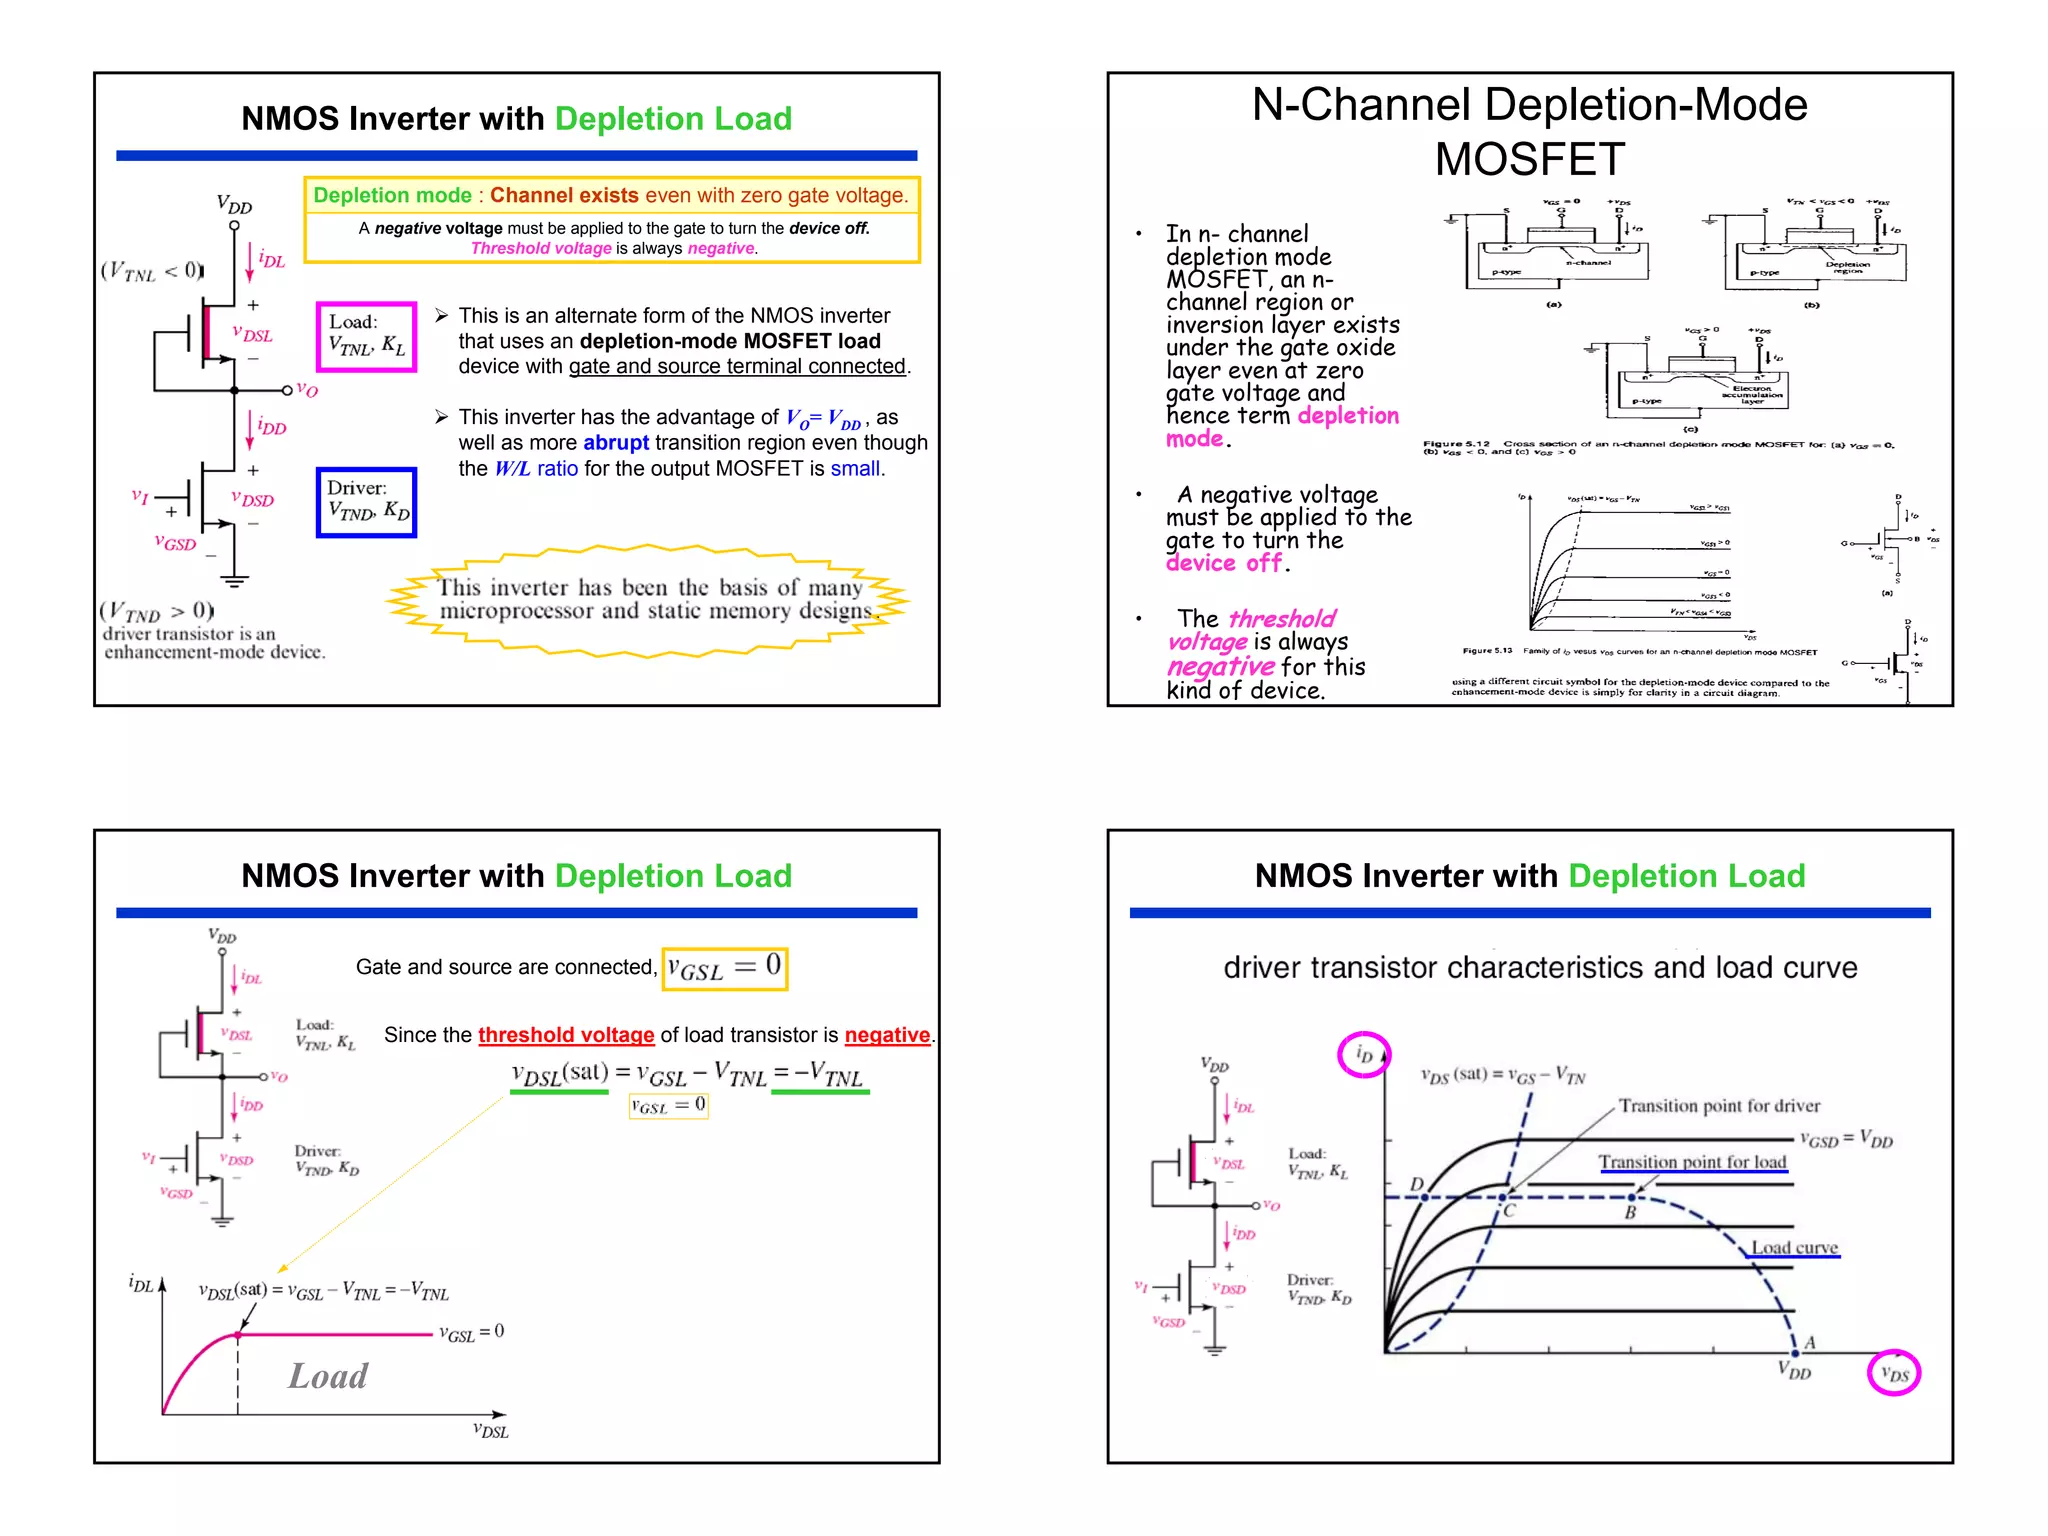 NMOS Inverter with Depletion Load
Depletion mode : Channel exists even with zero gate voltage.
A negative voltage must be applied to the gate to turn the device off.
Threshold voltage is always negative.
VDD
iDL
(VTNL < 0)
+
vDSL
−
Load:
VTNL, KL
vO
iDD
+
vI
+
vDSD
−
vGSD
−
Driver:
VTND, KD
(VTND > 0)
driver transistor is an
enhancement-mode device.
➢ This is an alternate form of the NMOS inverter
that uses an depletion-mode MOSFET load
device with gate and source terminal connected.
➢ This inverter has the advantage of VO= VDD , as
well as more abrupt transition region even though
the W/L ratio for the output MOSFET is small.
This inverter has been the basis of many
microprocessor and static memory designs.
N-Channel Depletion-Mode
MOSFET
• In n- channel
depletion mode
MOSFET, an n-
channel region or
inversion layer exists
under the gate oxide
layer even at zero
gate voltage and
hence term depletion
mode.
• A negative voltage
must be applied to the
gate to turn the
device off.
• The threshold
voltage is always
negative for this
kind of device.
vGS = 0 +vDS
S G D
iD
n+ n+
n-channel
p-type
(a)
VTN < vGS < 0 +vDS
S G D
iD
n+ n+
Depletion
region
p-type
(b)
vGS > 0 +vDS
S G D
iD
n+ n+
Electron
accumulation
layer
p-type
(c)
Figure 5.12 Cross section of an n-channel depletion mode MOSFET for: (a) vGS = 0,
(b) vGS < 0, and (c) vGS > 0
iD
vDS(sat) = vGS − VTN
vGS2 > vGS1
vGS1 > 0
vGS = 0
vGS3 < 0
VTN < vGS4 < vGS3
vDS
Figure 5.13 Family of iD vesus vDS curves for an n-channel depletion mode MOSFET
using a different circuit symbol for the depletion-mode device compared to the
enhancement-mode device is simply for clarity in a circuit diagram.
D
iD
+
G B vDS
+
vGS −
−
S
(a)
D
iD
+
G vDS
vGS −
NMOS Inverter with Depletion Load
VDD
iDL
+
vDSL
−
Load:
VTNL, KL
vO
iDD
+
vI
+
vDSD
−
vGSD
−
Driver:
VTND, KD
Gate and source are connected, vGSL = 0
Since the threshold voltage of load transistor is negative.
vDSL(sat) = vGSL − VTNL = −VTNL
vGSL = 0
iDL
vDSL(sat) = vGSL − VTNL = −VTNL
vGSL = 0
Load
vDSL
NMOS Inverter with Depletion Load
driver transistor characteristics and load curve
VDD
iDL
+
vDSL
−
Load:
VTNL, KL
vO
iDD
+
vI
+
vDSD
−
vGSD
−
Driver:
VTND, KD
iD
vDS (sat) = vGS − VTN
Transition point for driver
vGSD = VDD
Transition point for load
D
C
B
Load curve
A
VDD
vDS